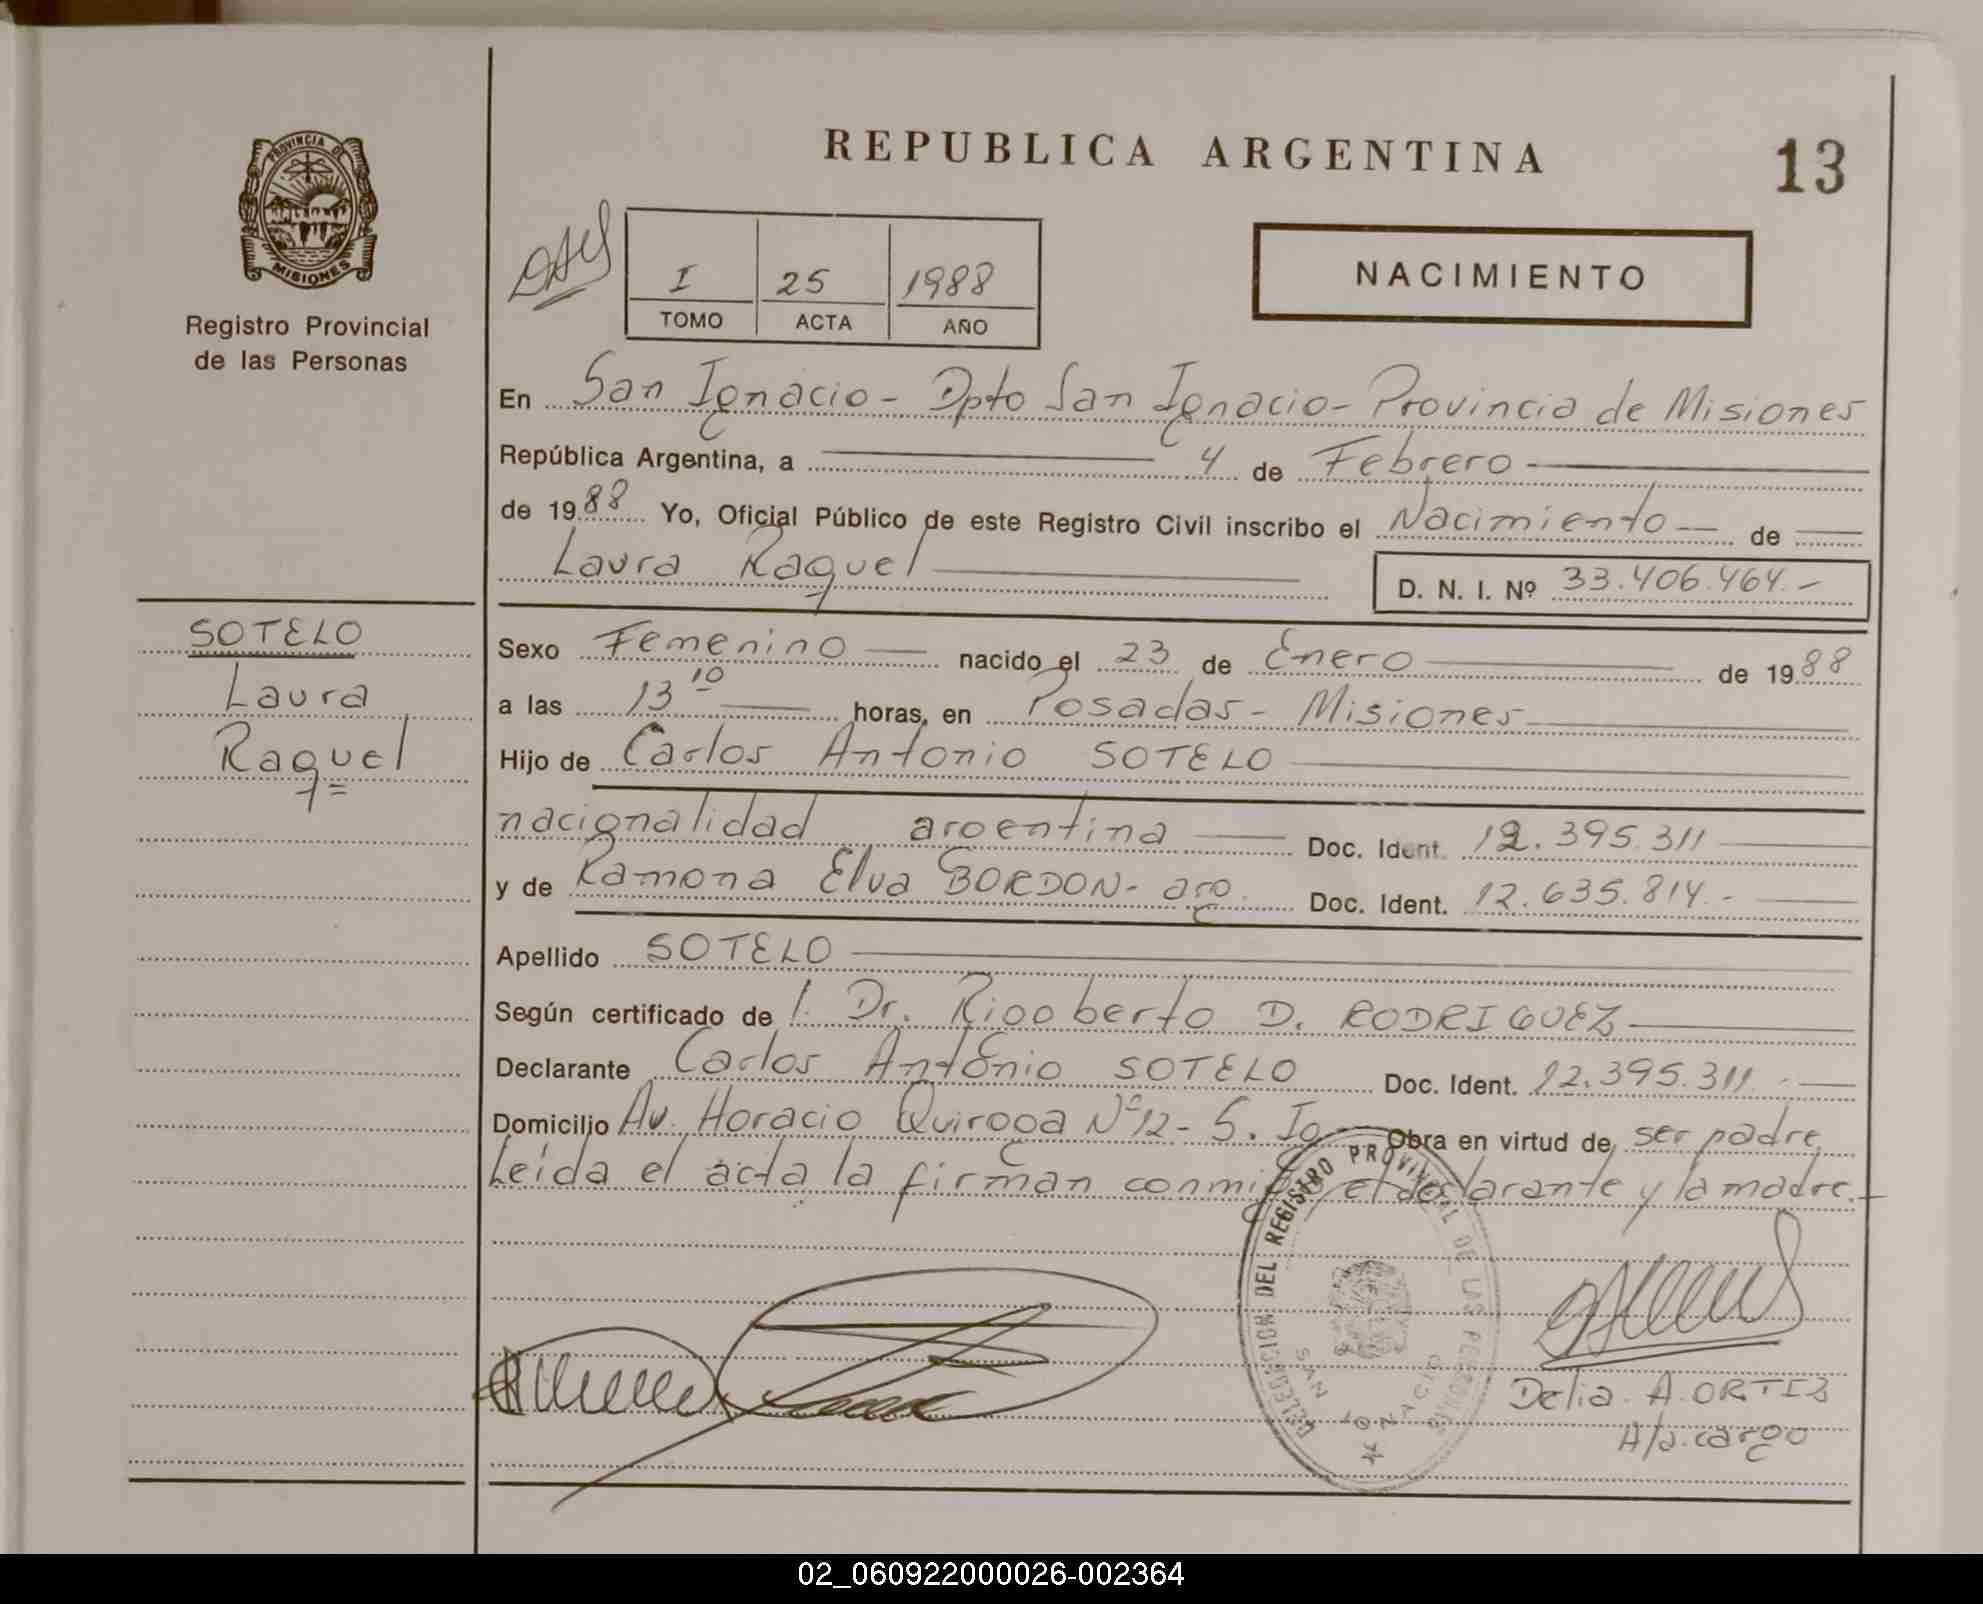 REPUBLICA ARGENTINA
13
PROVINCIA DE
MISIONES
Registro Provincial
de las Personas
I 25 1988
TOMO ACTA AÑO
NACIMIENTO
En San Ignacio - Dpto San Ignacio - Provincia de Misiones
República Argentina, a 4 de Febrero
de 1988 Yo, Oficial Público de este Registro Civil inscribo el Nacimiento de
Laura Raquel D. N. I. Nº 33.406.464.-
SOTELO
Laura
Raquel
Sexo Femenino nacido el 23 de Enero de 1988
a las 13 10 horas, en Posadas - Misiones
Hijo de Carlos Antonio SOTELO
nacionalidad argentina Doc. Ident. 12.395.311
y de Ramona Elva BORDON - arg. Doc. Ident. 12.635.814.-
Apellido SOTELO
Según certificado de l. Dr. Rigoberto D. RODRIGUEZ
Declarante Carlos Antonio SOTELO Doc. Ident. 12.395.311.-
Domicilio Av. Horacio Quiroga Nº 12 - S. Ig. Obra en virtud de ser padre
Leída el acta la firman conmigo el declarante y la madre.-
DELEGACION DEL REGISTRO PROVINCIAL DE LAS PERSONAS
SAN IGNACIO
Delia. A. ORTIZ
A/a. cargo
02_060922000026-002364